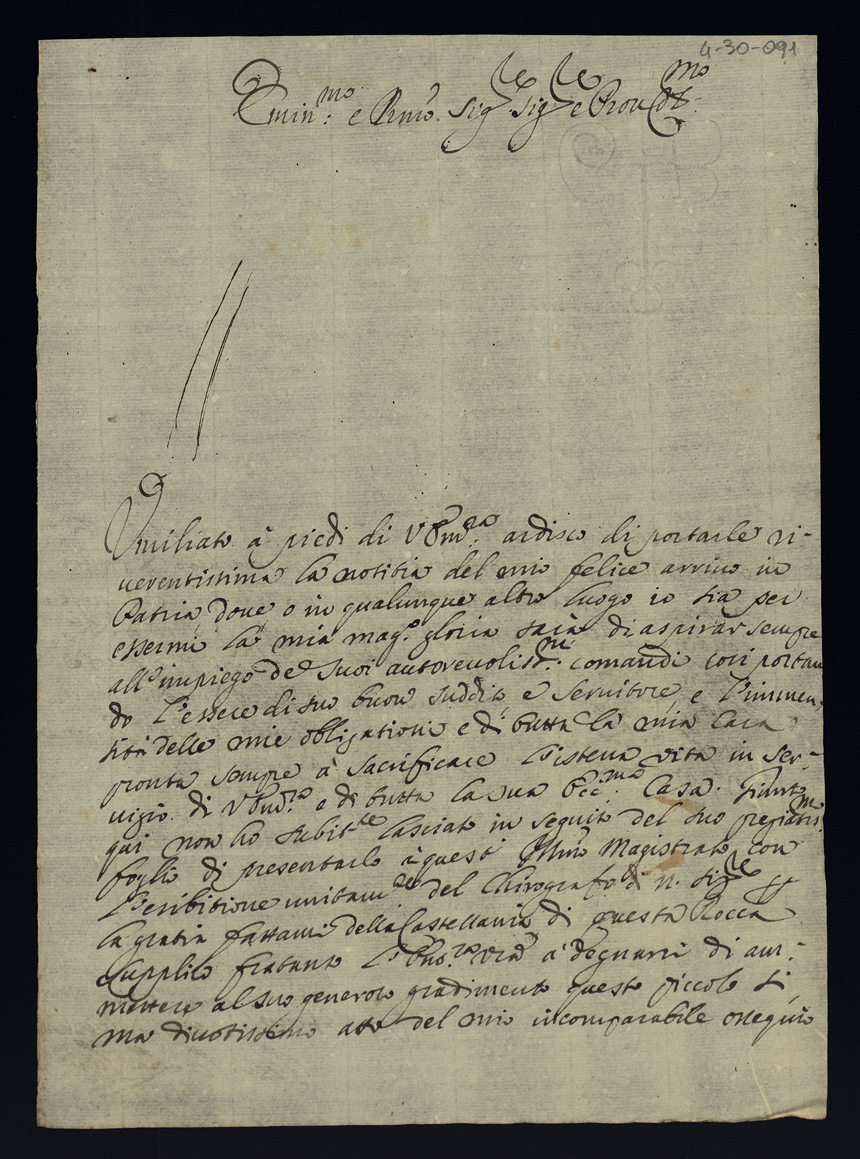 4-30-091
Emin:mo e Rmo. Sigre Sigre e Pron Colmo:
Umiliato à piedi di VEm:za ardisco di portarle ri-
uerentissima la notitia del mio felice arriuo in
Patria, doue o in qualunque altro luogo io sia per
essermi la mia mag:e gloria sarà di aspirar sempre
all'impiego de suoi autoreuolissmi: comandi così portan
do l'essere di suo buon suddito, e seruitore, e l'immen,
sità delle mie obligationi e di tutta la mia Casa
pronta sempre à sacrificare l'istessa vita in ser-
uizio di VEm:za e di tutta la sua Ecc:ma Casa. Giunto
qui non ho subit:te lasciato in seguito del suo pregiatismo:
foglio di presentarlo à questo Illmo Magistrato, con
l'esibitione unitamte del Chirografo di N. Sigre pp
la gratia fattami della Castellania di questa Rocca
Supplico fratanto l'Em:za Vra à degnarsi di am:
mettere al suo generoso gradimento questo piccolo si,
ma diuotissimo atto del mio incomparabile ossequio